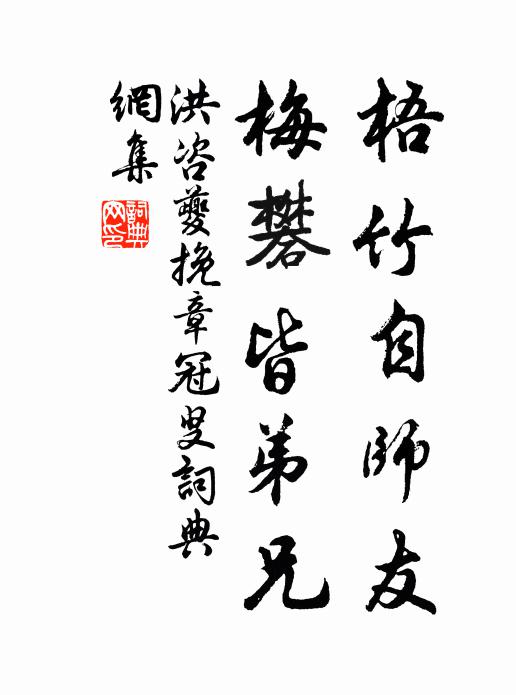 梧竹自師友
梅礬皆弟兄
洪咨夔挽章冠叟詞典
網集
詞典網印